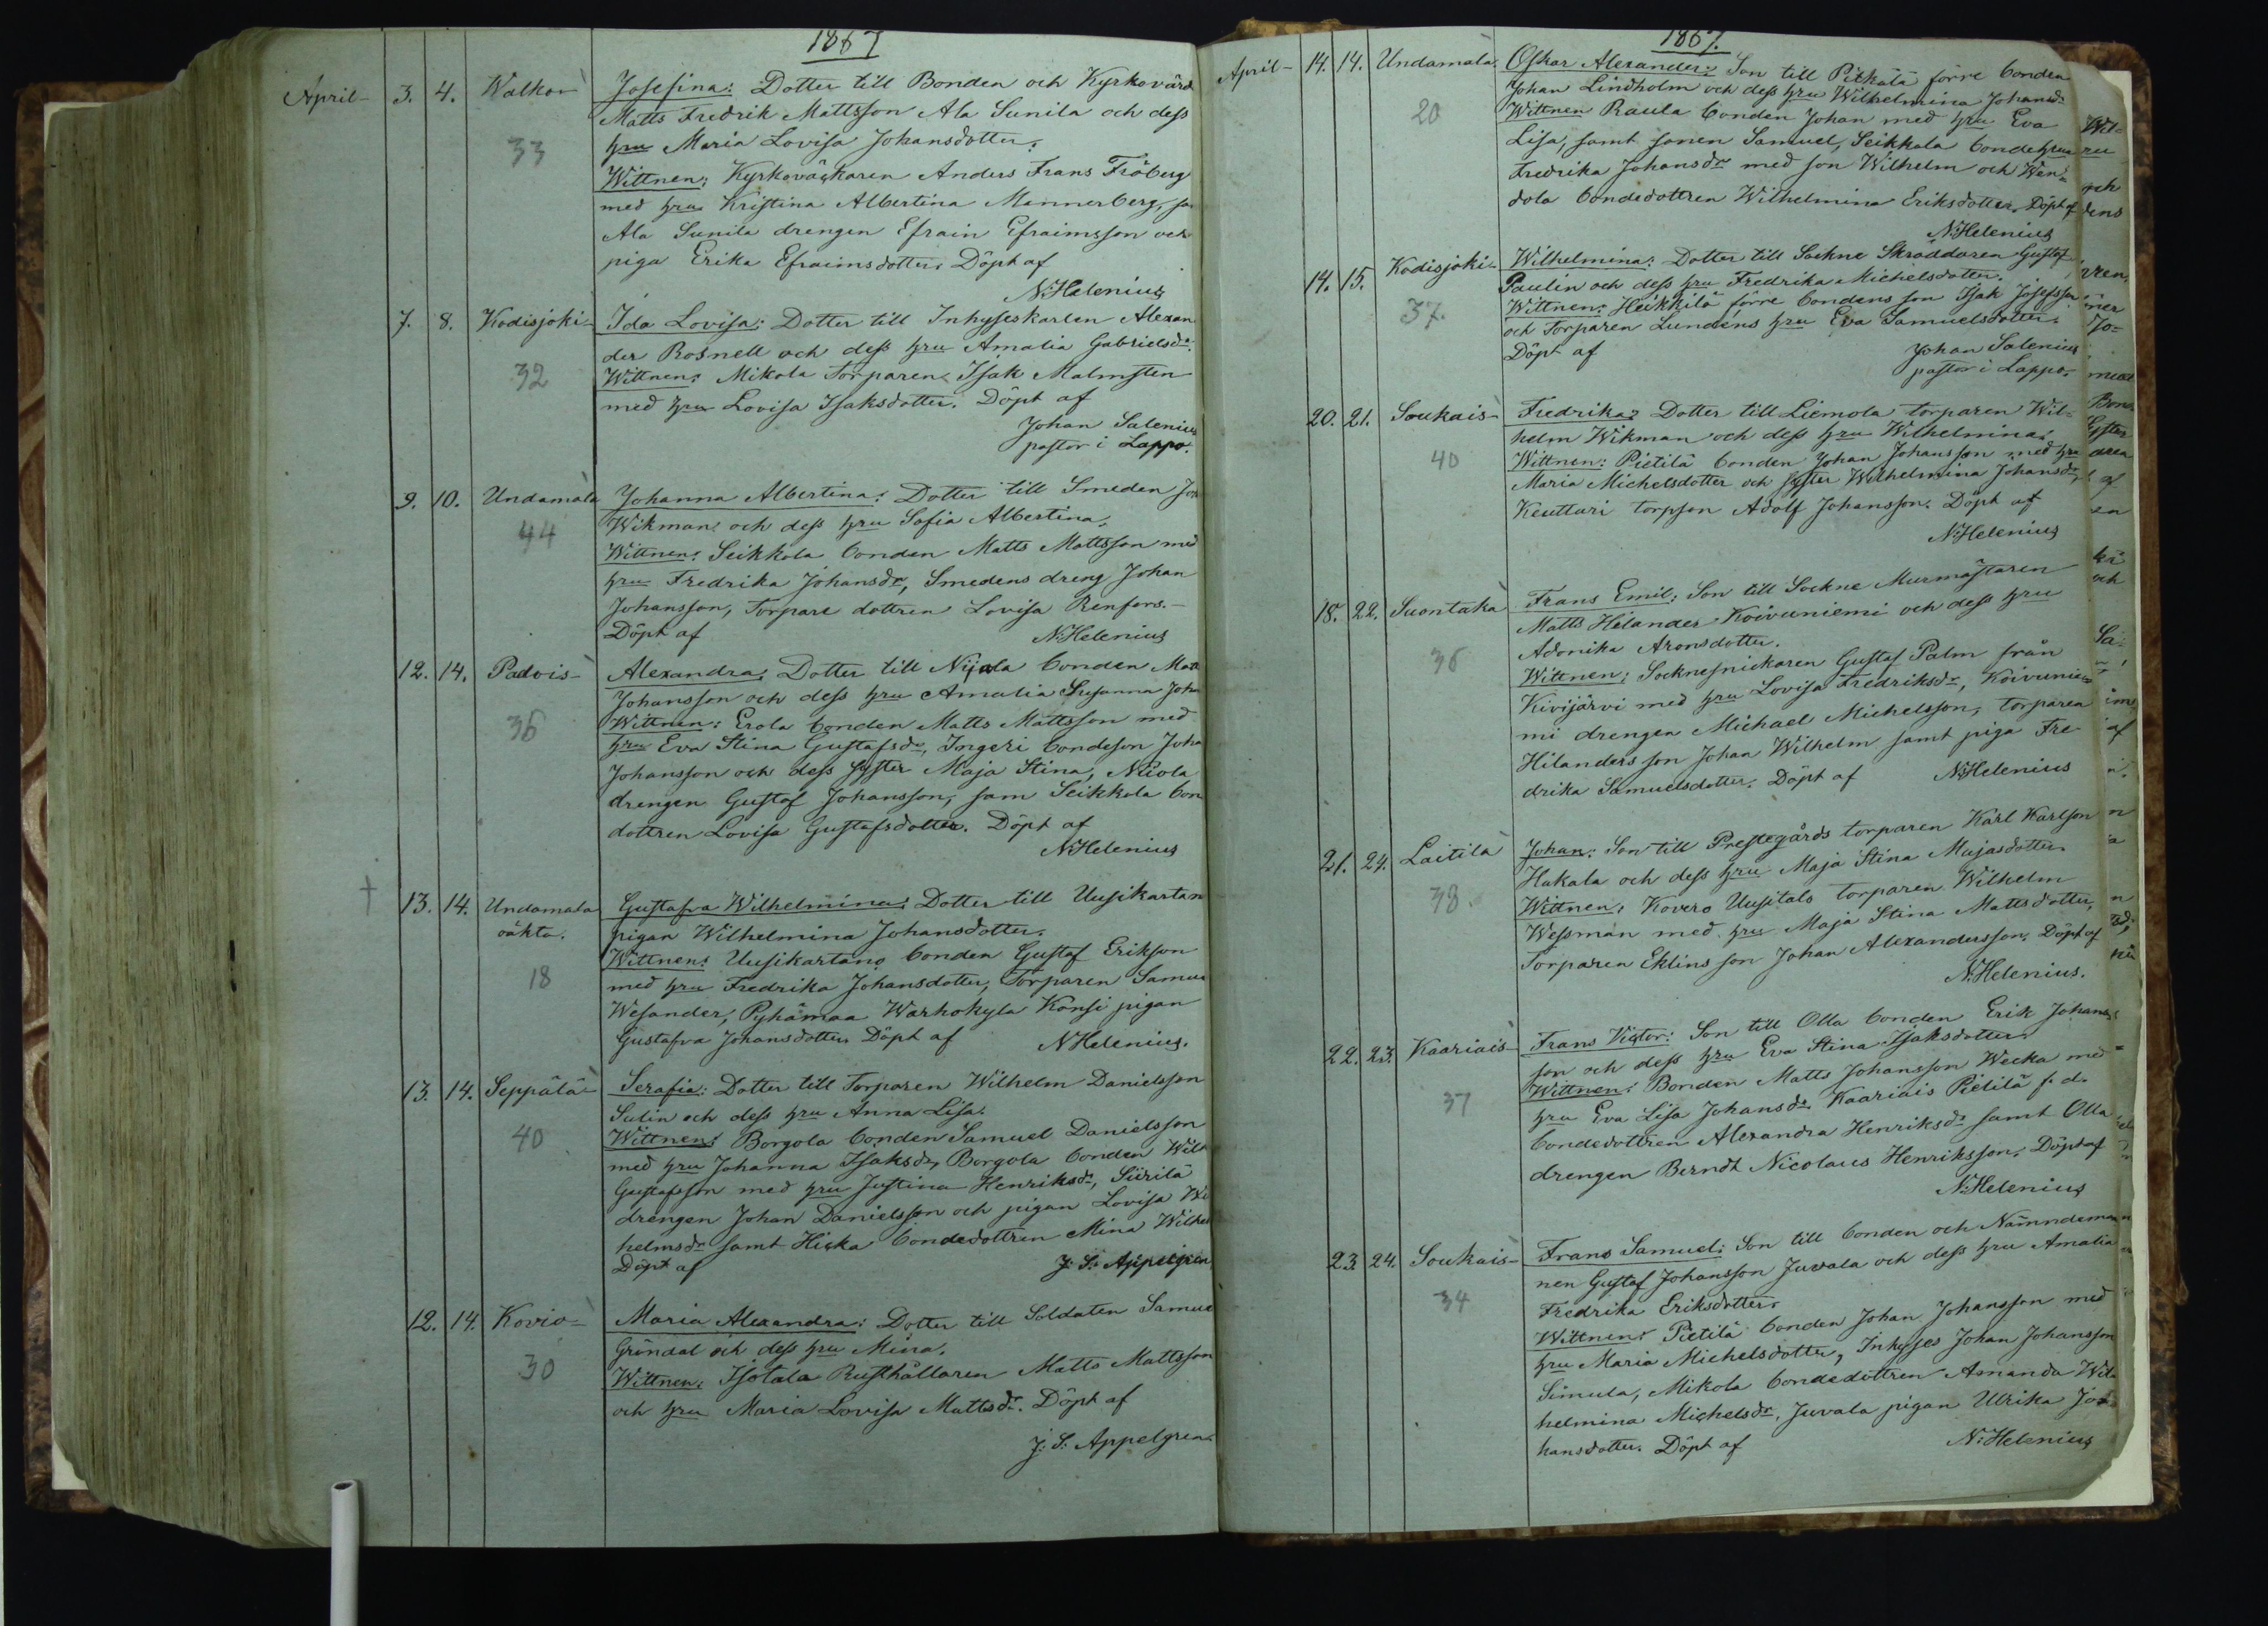 1867
April- 3. 4. Walko- Josefina: Dotter till Bonden och Kyrkovärd
Matts Fredrik Mattsson Ala Sunila och dess
33 hru Maria Lovisa Johansdotter.
Wittnen: Kyrkoväckaren Anders Frans Fröberg
med hru Kristina Albertina Mannerberg, sa
Ala Sunila drengen Efraim Efraimsson och
piga Erika Efraimsdotter. Döpt af
N. Helenius
7. 8. Kodisjoki- Ida Lovisa: Dotter till Inhyseskarlen Alexan
der Rosnell och dess hru Amalia Gabrielsdr.
32 Wittnen: Mikola torparen Isak Malmsten
med hru Lovisa Isaksdotter. Döpt af
Johan Salenius
pastor i Lappo.
9. 10. Undamala Johanna Albertina: Dotter till Smeden Joh
Wikman och dess hru Sofia Albertina.
44 Wittnen: Seikkola bonden Matts Mattsson med
hru Fredrika Johansdr, Smedens dreng Johan
Johansson, Torpare dottren Lovisa Renfors.-
Döpt af N. Helenius
12. 14. Padois- Alexandra: Dotter till Nijala bonden Matt
Johansson och dess hru Amalia Susanna Joha
36 Wittnen: Erola bonden Matts Mattsson med
hru Eva Stina Gustafsdr, Ingeri bondeson Joha
Johansson och dess syster Maja Stina, Nicola
drengen Gustaf Johansson, sam Seikkola bon
dottren Lovisa Gustafsdotter. Döpt af
N. Helenius
† 13. 14. Undamala Gustafva Wilhelmina: Dotter till Uusikartan
oäkta. pigan Wilhelmina Johansdotter.
Wittnen: Uusikartano bonden Gustaf Erikson
18 med hru Fredrika Johansdotter, Torparen Samue
Wesander, Pyhämaa Warhokyla Kansi pigan
Gustafva Johansdotter. Döpt af N. Helenius.
13. 14. Seppälä- Serafia: Dotter till Torparen Wilhelm Danielsson
Sulin och dess hru Anna Lisa.
40 Wittnen: Borgola bonden Samuel Danielsson
med hru Johanna Isaksdr, Borgola bonden Wilh
Gustafsson med hru Justina Henriksdr, Siirilä
drengen Johan Danielsson och pigan Lovisa Wi
helmsdr samt Hiska bondedottren Mina Wilhel
Döpt af J. S. Appelgren
12. 14. Kovio- Maria Alexandra: Dotter till Soldaten Samue
Gröndal och dess hru Mina.
30 Wittnen: Isotala Rusthållaren Matts Mattsson
och hru Maria Lovisa Mattsdr. Döpt af
J. S. Appelgren.
1867.
April- 14. 14. Undamala. Oskar Alexander: Son till Pitkälä förre bonden
Johan Lindholm och dess hru Wilhelmina Johansd.
20 Wittnen Raula bonden Johan med hru Eva
Lisa, samt sonen Samuel, Seikkala bondehru
Fredrika Johansdr med son Wilhelm och Wän-
dola bondedottren Wilhelmina Eriksdotter. Döpt af
N. Helenius
14. 15. Kodisjoki- Wilhelmina: Dotter till Sockne Skräddaren Gustaf
Paulin och dess hru Fredrika Michelsdotter.
37. Wittnen: Heikkilä förre bondens son Isak Josefsson
och Torparen Lundens hru Eva Samuelsdotter.
Döpt af Johan Salenius
pastor i Lappo.
20. 21. Soukais- Fredrika: Dotter till Liemola torparen Wil-
helm Wikman och dess hru Wilhelmina.
40 Wittnen: Pietilä bonden Johan Johansson med hru
Maria Michelsdotter och syster Wilhelmina Johansdr,
Keuttari torpson Adolf Johansson. Döpt af
N. Helenius
18. 22. Suontaka Frans Emil: Son till Sockne Murmästaren
Matts Helander Koivuniemi och dess hru
Adonika Aronsdotter.
36 Wittnen: Socknesnickaren Gustaf Palm från
Kivijärvi med hru Lovisa Fredriksdr, Koivunie-
mi drengen Michael Michelsson, torparen
Hilanders son Johan Wilhelm samt piga Fre-
drika Samuelsdotter. Döpt af N. Helenius
21. 24. Laitila Johan: Son till Prestegårds torparen Karl Karlson
Hakala och dess hru Maja Stina Majasdotter.
38. Wittnen: Kovero Uusitalo torparen Wilhelm
Wessman med hru Maja Stina Mattsdotter,
Torparen Eklins son Johan Alexandersson. Döpt af
N. Helenius.
22. 23. Kaariais- Frans Victor: Son till Olla bonden Erik Johans-
son och dess hru Eva Stina Isaksdotter.
37 Wittnen: Bonden Matts Johansson Wecka med
hru Eva Lisa Johansdr Kaariais Pietilä f. d.
bondedottren Alexandra Henriksdr samt Olla
drengen Berndt Nicolaus Henriksson. Döpt af
N. Helenius
23. 24. Soukais- Frans Samuel: Son till bonden och Nämndeman
nen Gustaf Johansson Juvala och dess hru Amalia
34 Fredrika Eriksdotter.
Wittnen: Pietilä bonden Johan Johansson med
hru Maria Michelsdotter, Inhyses Johan Johansson
Simula, Mikola bondedottren Amanda Wil
helmina Michelsdr, Juvala pigan Ulrika Jo-
hansdotter. Döpt af N. Helenius